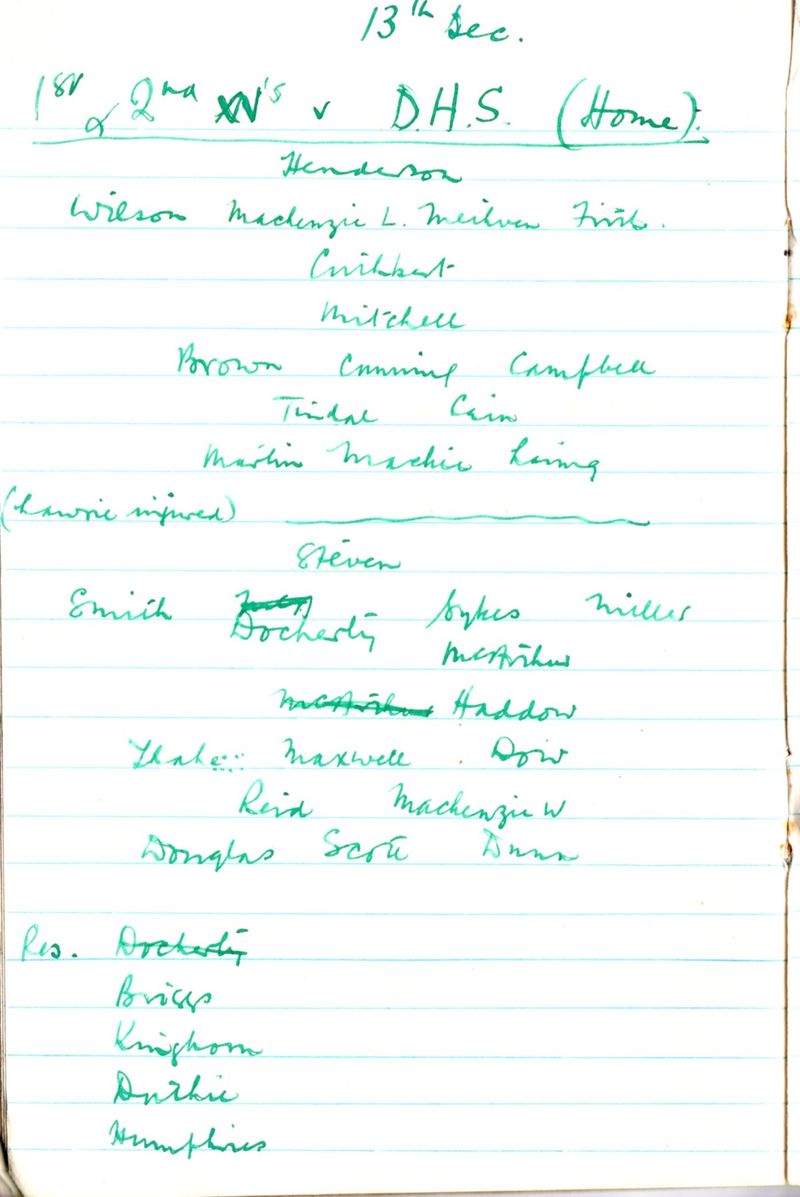 13th Dec.
1st & 2nd XV's v D.H.S. (Home).
Henderson
Wilson Mackenzie L. Meikven Firth.
Cuthbert
Mitchell
Brown Cumming Campbell
Tindal Cain
Martin Mackie Laing
(Lawrie injured)
Steven
Smith Docherty Sykes Miller
McArthur
McArthur Haddow
Maxwell Dow
Reid Mackenzie W
Douglas Scott Dunn
Res. Docherty
Briggs
Kinghorn
Duthie
Humphries